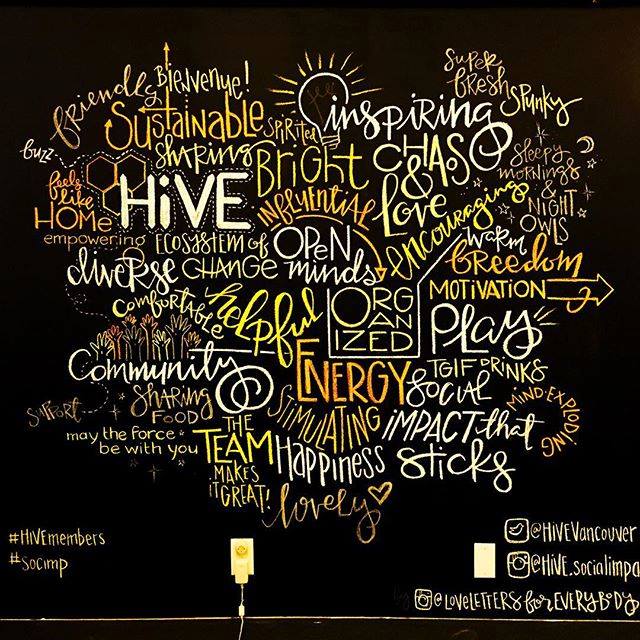 friendly
Bienvenue!
Sustainable
Spirited
inspiring
super
fresh
spunky
buzz
sharing
Bright
CHAOS
&
Love
sleepy
mornings
&
NIGHT
OWLS
feels
like
HOME
HiVE
iNFLUENTiAL
encouraging
empowering
ECOSYSTEM of
CHANGE
OPEN
minds
warm
freedom
diverse
comfortable
helpful
ORG
AN
IZED
MOTIVATION
PLAY
Community
ENERGY
SOCIAL
TGIF DRINKS
SUPPORT
SHARING
FOOD
STIMULATING
iMPACT that
sticks
MIND-EXPLODING
may the force
be with you
THE
TEAM
MAKES
iT GREAT!
HAPPiNESS
lovely
#HiVEmembers
#socimp
@HiVEVancouver
@HiVE.socialimpa
by @LOVELETTERS for EVERYBODY